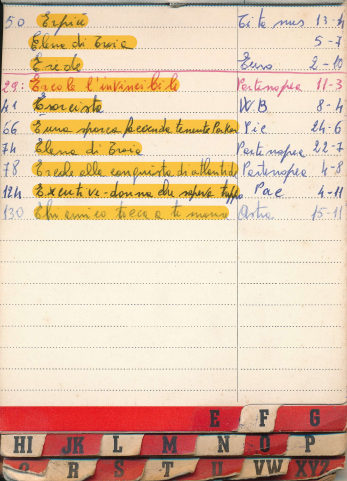 50 Espiu Titanus 13-4
Elena di Troia 5-7
Erede Euro 2-10
29: Ercole l'invincibile Partenopea 11-3
41 Esorcista W.B 8-4
66 È una sporca faccenda tenente Parker Pic 24-6
74 Elena di Troia Partenopea 22-7
78 Ercole alla conquista di atlantide Partenopea 4-8
124 Executive-donna che sapeva troppo Pac 4-11
130 Ehi amico tocca a te morire Astra 15-11
E F G
HI JK L M N O P
Q R S T U VW XYZ